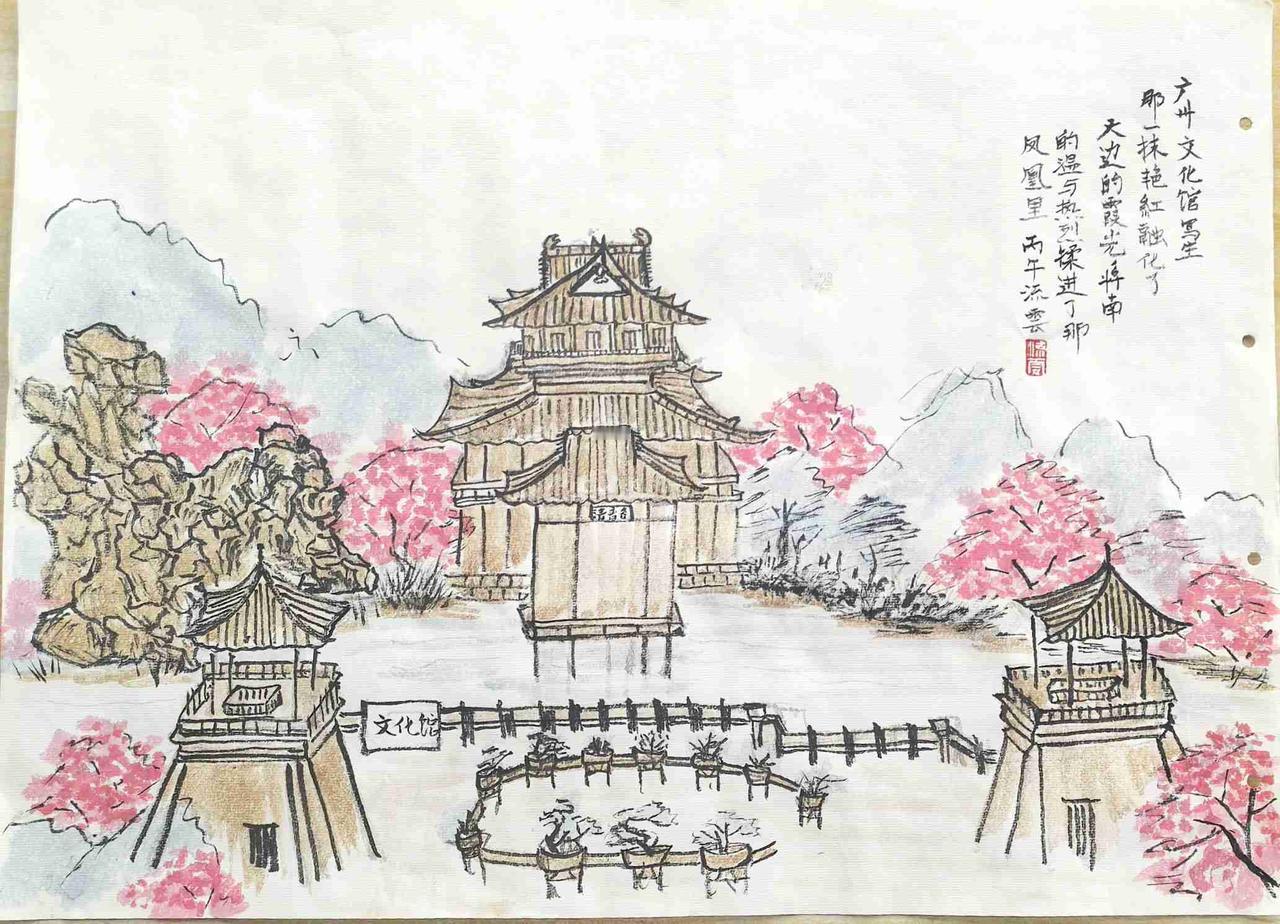 广州文化馆写生
那一抹艳红融化了
天边的霞光将南
的温与热烈揉进了那
凤凰里 丙午流雲
流雲
文化馆